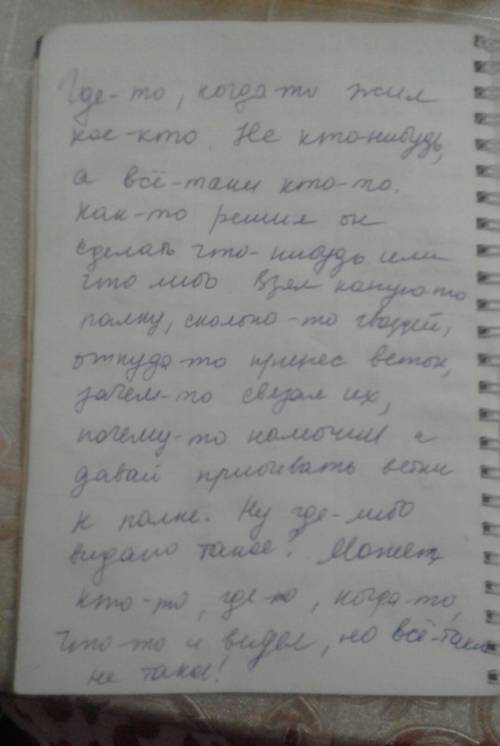 Где-то, когда-то жил
кое-кто. Не кто-нибудь,
а всё-таки кто-то.
Как-то решил он
сделать что-нибудь или
что либо взял какую-то
палку, сколько-то гвоздей,
откуда-то принес веток,
зачем-то связал их,
почему-то намочил и
давай прибивать ветки
к палке. Ну где-либо
видано такое? Может
кто-то, где-то, когда-то,
что-то и видел, но всё-таки
не такое!